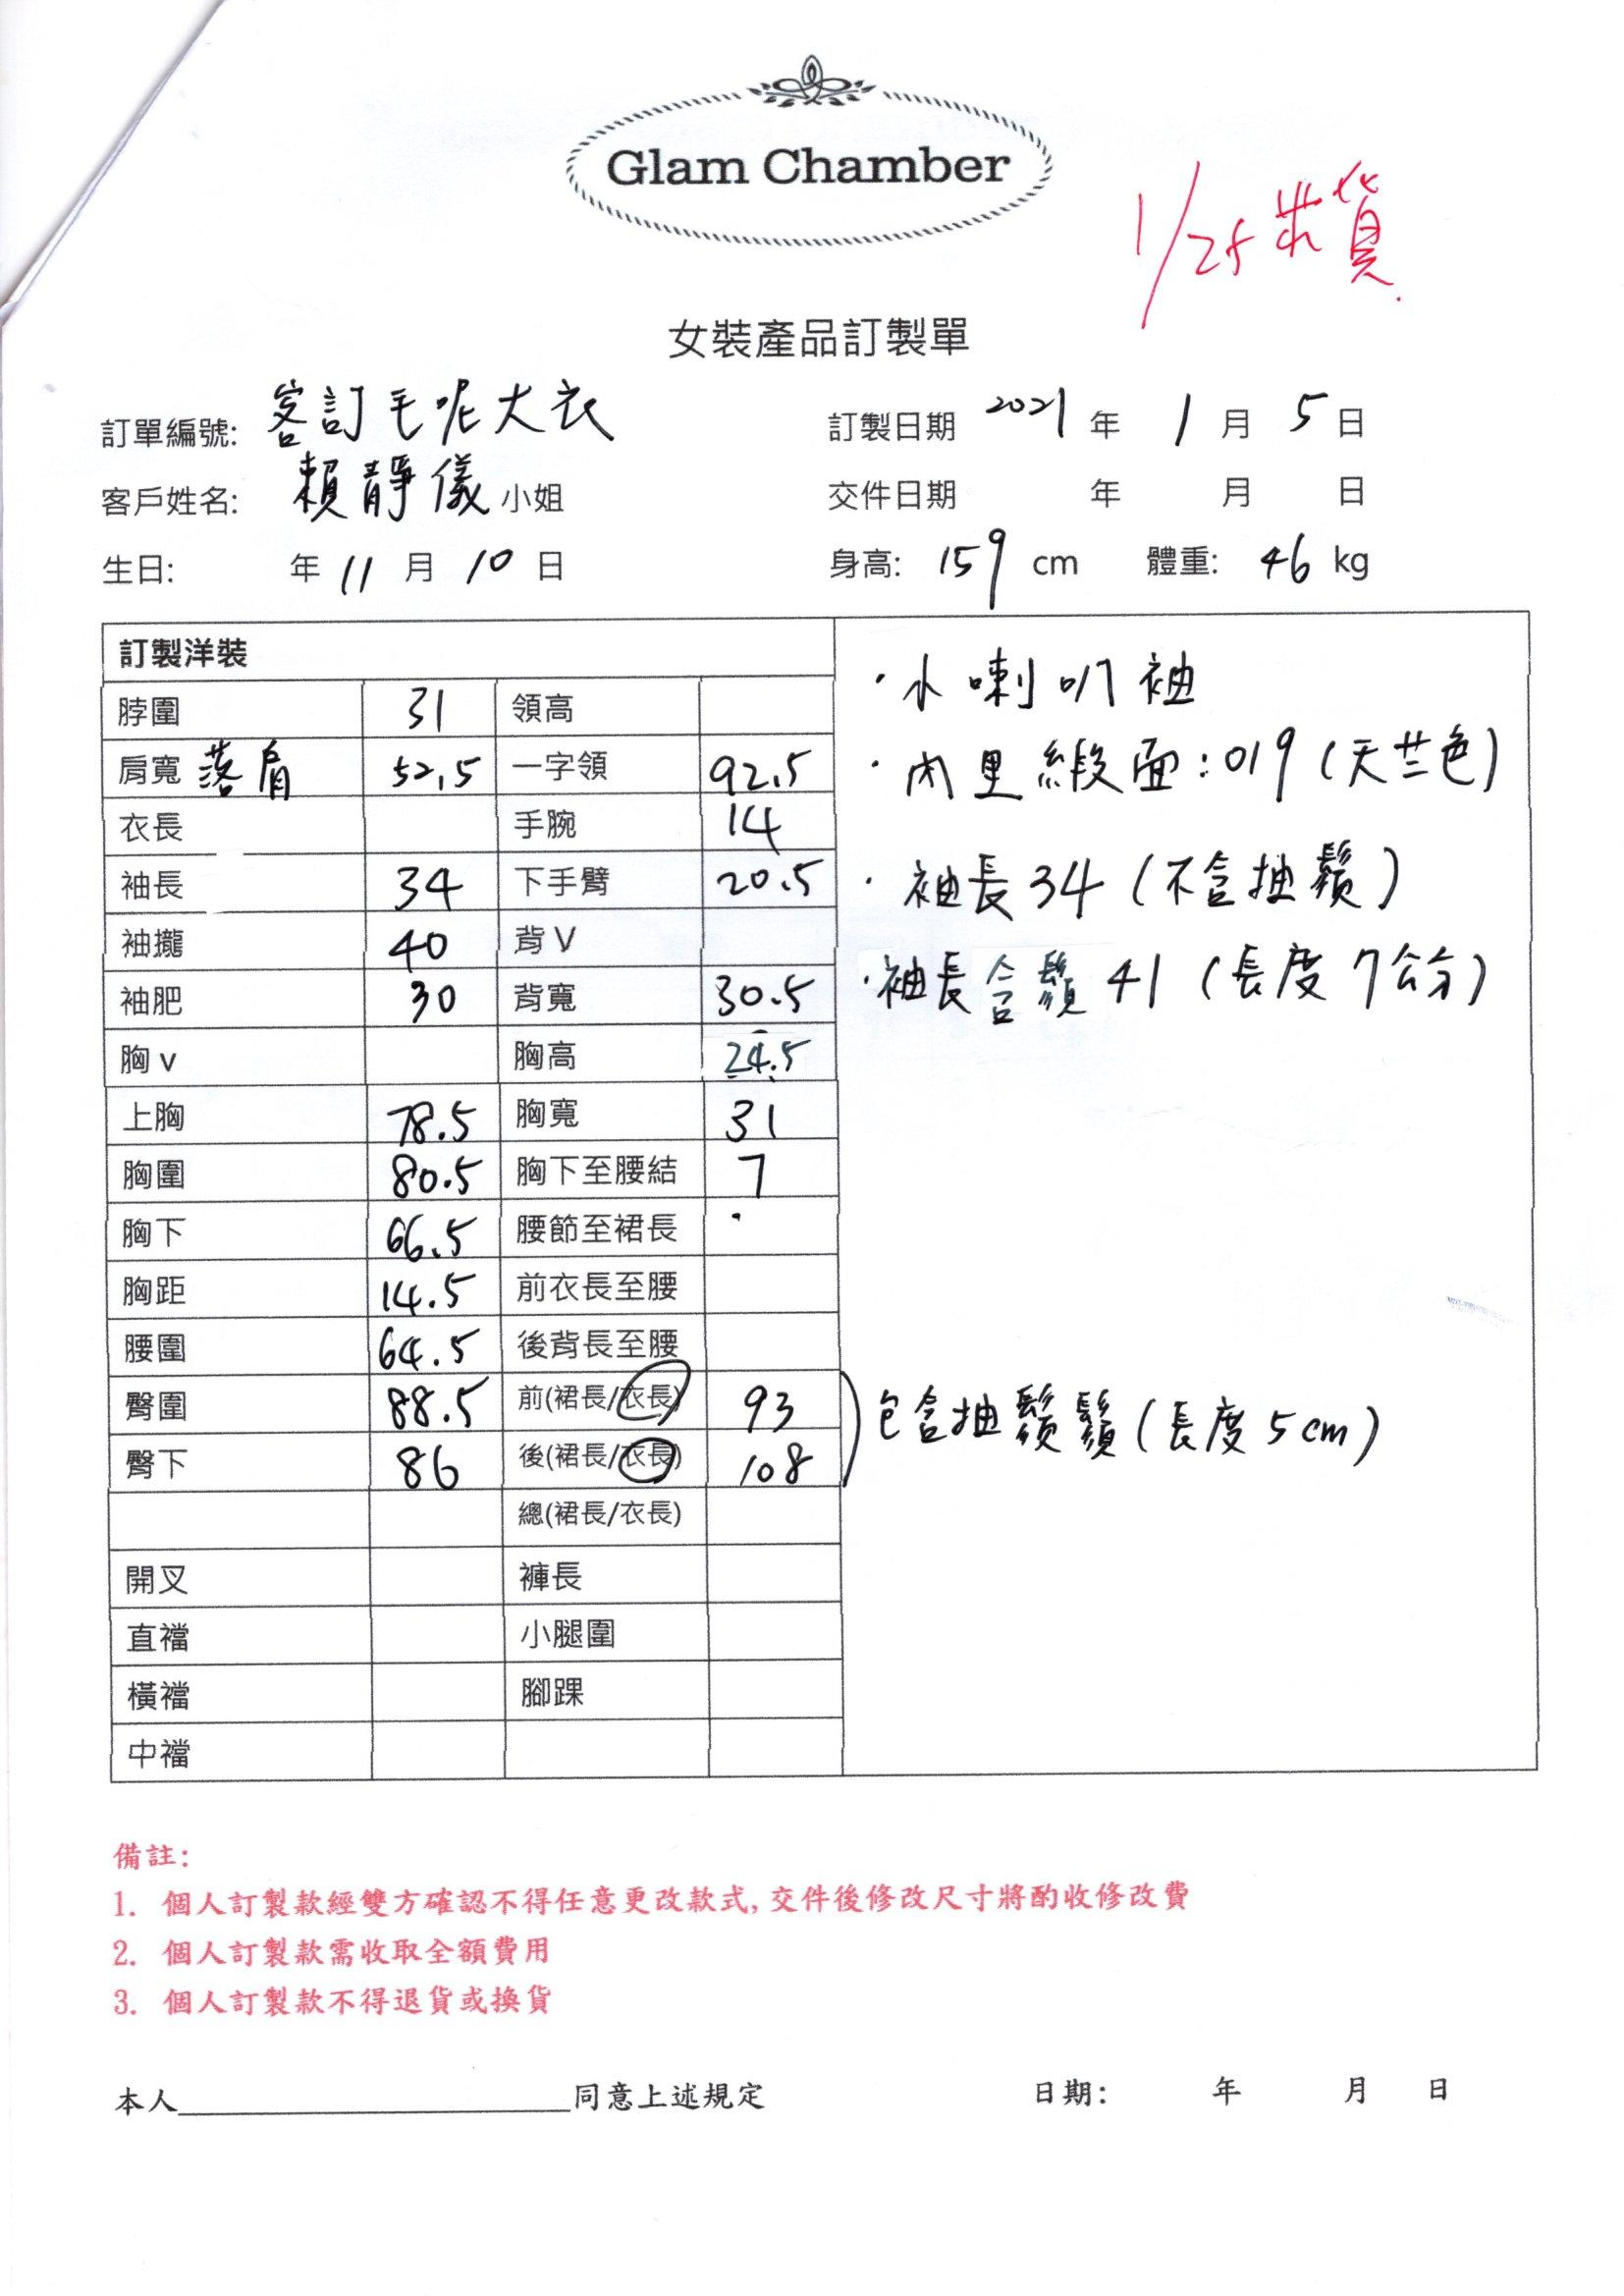 Glam Chamber
1/25 出貨.
女裝產品訂製單
訂單編號: 客訂毛呢大衣
訂製日期 2021 年 1 月 5 日
客戶姓名: 賴靜儀 小姐
交件日期 年 月 日
生日: 年 11 月 10 日
身高: 159 cm 體重: 46 kg
訂製洋裝
脖圍 31 領高
肩寬 落肩 52.5 一字領 92.5
衣長 手腕 14
袖長 34 下手臂 20.5
袖攏 40 背V
袖肥 30 背寬 30.5
胸v 胸高 24.5
上胸 78.5 胸寬 31
胸圍 80.5 胸下至腰結 7
胸下 66.5 腰節至裙長
胸距 14.5 前衣長至腰
腰圍 64.5 後背長至腰
臀圍 88.5 前(裙長/衣長) 93
臀下 86 後(裙長/衣長) 108
總(裙長/衣長)
開叉 褲長
直襠 小腿圍
橫襠 腳踝
中襠
·小喇叭袖
·內里緞面:019(天芒色)
·袖長34(不含抽鬚)
·袖長含鬚41(長度7公分)
包含抽鬚鬚(長度5cm)
備註:
1. 個人訂製款經雙方確認不得任意更改款式, 交件後修改尺寸將酌收修改費
2. 個人訂製款需收取全額費用
3. 個人訂製款不得退貨或換貨
本人________________同意上述規定 日期: 年 月 日